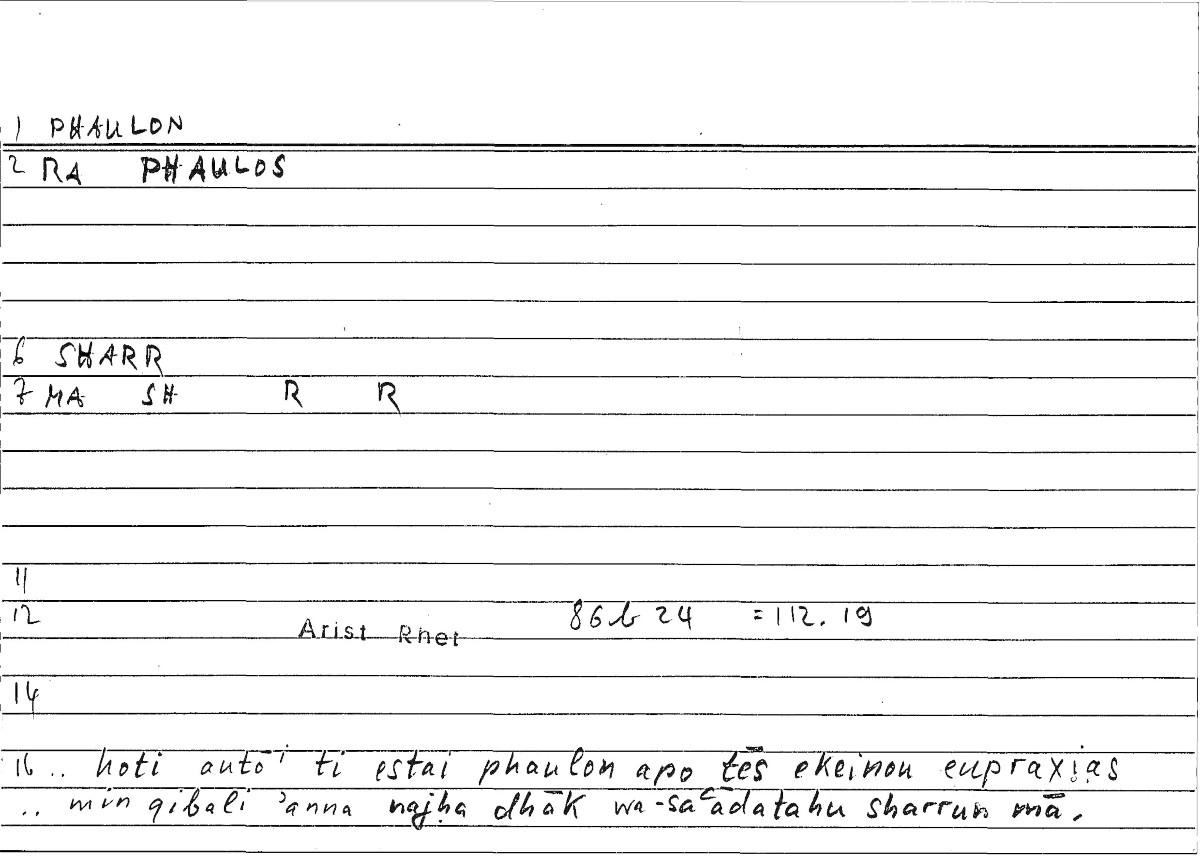 1 PHAULON
2 RA PHAULOS
6 SHARR
7 MA SH R R
11
12 86b24 =112.19
Arist Rhet
14
16 .. hoti autō i ti estai phaulon apo tēs ekeinou eupraxias
.. min qibali 'anna najḥa dhāk wa-saʿādatahu sharrun mā.